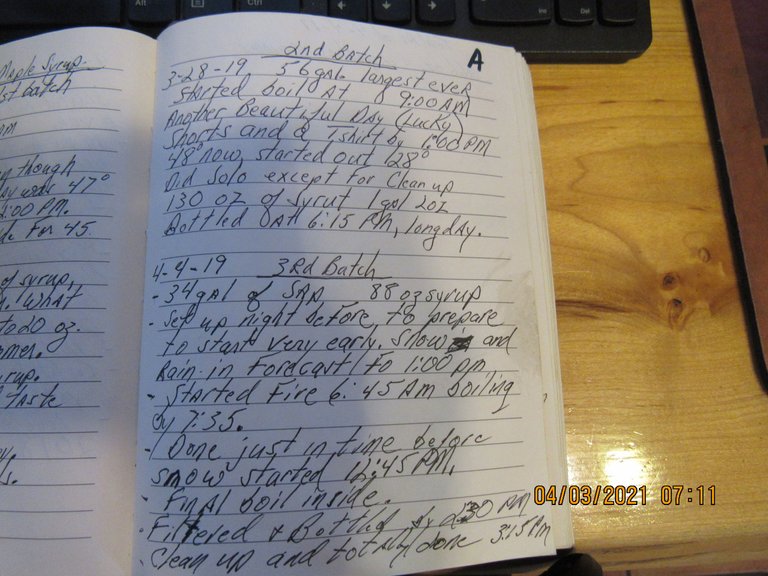 Maple Syrup
1st batch
pm
though
Day was 47°
2:00 PM.
for 45
of syrup,
what
to do oz.
syrup.
taste
2nd Batch
A
3-28-19 56 gal largest ever
Started boil at 9:00 AM
Another Beautiful Day (Lucky)
Shorts and a Tshirt by 1:00 PM
48° now, started out 28°
Did Solo except for Clean up
130 oz of syrut 1 gal 2oz
Bottled at 6:15 PM, long day.
4-4-19 3Rd Batch
- 34 gal of SAP 88 oz syrup
- Set up night before, to prepare
to start very early. Snow and
Rain in Fordcast to 1:00 pm
- Started Fire 6:45 AM boiling
by 7:35.
- Done just in time before
snow started 12:45 PM.
- Final boil inside.
- Filtered & Bottled by 2:30 PM
- Clean up and totally done 3:15 PM
Alt
Ctrl
Ins
Del
04/03/2021 07:11